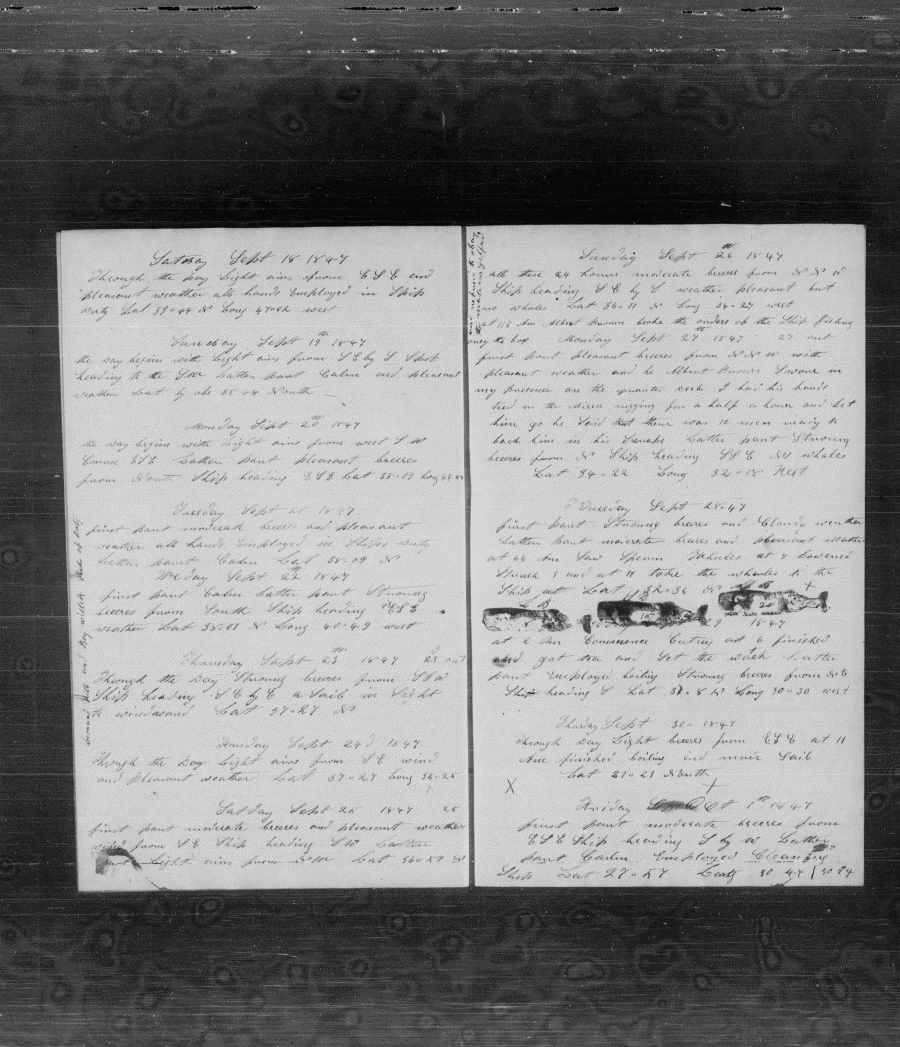 Satday Sept 18 1847
Through the Day Light airs from ESE and
pleasant weather all hands Employed in Ship
Duty Lat 39-44 N Long 47-02 west
Sunday Sept 19th 1847
the Day begins with Light airs from SE by S Ship
heading to the SW Latter part Calm and pleasant
weather Lat by obs 38 44 North
Monday Sept 20th 1847
the day begins with Light airs from west S W
Course ESE Latter part pleasant breezes
from North Ship heading ESE Lat 38-07 Long
Tuesday Sept 21 1847
first part moderate breezes and pleasant
weather all hands Employed in Ships duty
Latter part Calm Lat 38-09 N
Weday Sept 22 1847
first part Calm Latter part Stroung
breezes from South Ship heading ESE
weather Lat 38-07 N Long 40-49 west
Thursday Sept 23th 1847 23 out
Through the Day Stroung breezes from SSW
Ship heading SE by E a Sail in Sight
to windward Lat 37-27 N
friday Sept 24 1847
Through the Day Light airs from SE wind
and pleasant weather Lat 37-27 Long 35-25
Satday Sept 25 1847 25
first part moderate breezes and pleasant weather
wind from SE Ship heading SW Latter
part Light airs from Lat 36-50 N
Sunday Sept 26th 1847
all these 24 hours moderate breezes from N N W
Ship heading SE by S weather pleasant but
no whales Lat 36-11 N Long 34-27 west
at 11 Am Albert Brown broke the orders of the Ship
Monday Sept 27th 1847 27 out
first part pleasant breezes from N N W with
pleasant weather and he Albert Brown Swore in
my presence on the quarter Deck I had his hands
tied in the mizen rigging for a half a hour and Let
him go he Said that there was 12 men ready to
back him in his Scrape Latter part Stroung
breezes from N Ship heading SSE no whales
Lat 34-22 Long 32-18 West
Tuesday Sept 28-47
first part Stroung breezes and Cloudy weather
Latter part moderate breezes and pleasant weather
at Am Saw Sperm Whales at 8 Lowered
Struck 3 and at 11 toke the whales to the
Ship at Lat 32-36 N
1847
at 6 Am Commence Cuting at 6 finished
and got tea and Set the wach Latter
part Employed boiling Stroung breezes from
Ship heading S Lat 31-8 N Long 30-30 west
Thurday Sept 30-1847
Through Day Light breezes from ESE at 11
Am finished boiling and made Sail
Lat 29-23 North
X
Friday Oct 1th 1847
first part moderate breezes from
ESE Ship heading S by W Latter
part Calm Employed Cleaning
Ship Lat 27-57 Long 30 47